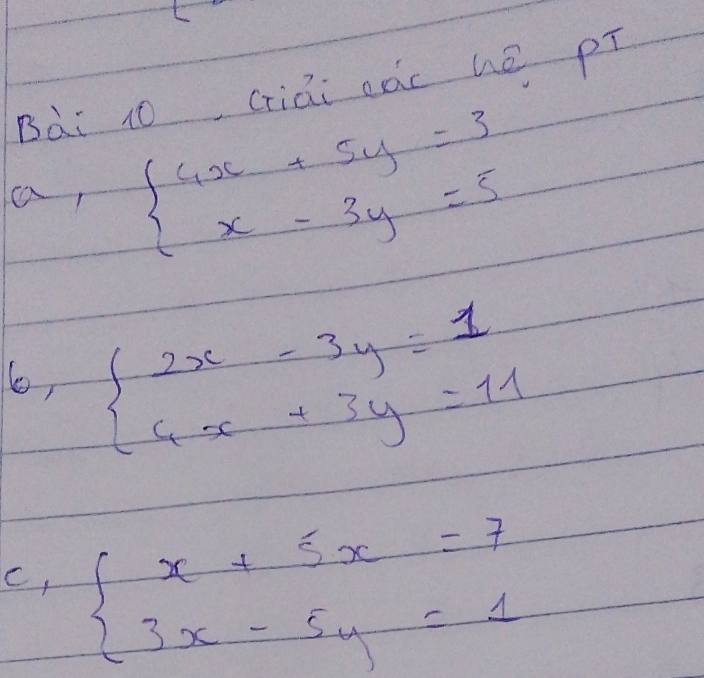 Bài 10. Giải các hệ PT
a, { 4x + 5y = 3
x - 3y = 5
b, { 2x - 3y = 1
4x + 3y = 11
c, { x + 5x = 7
3x - 5y = 1